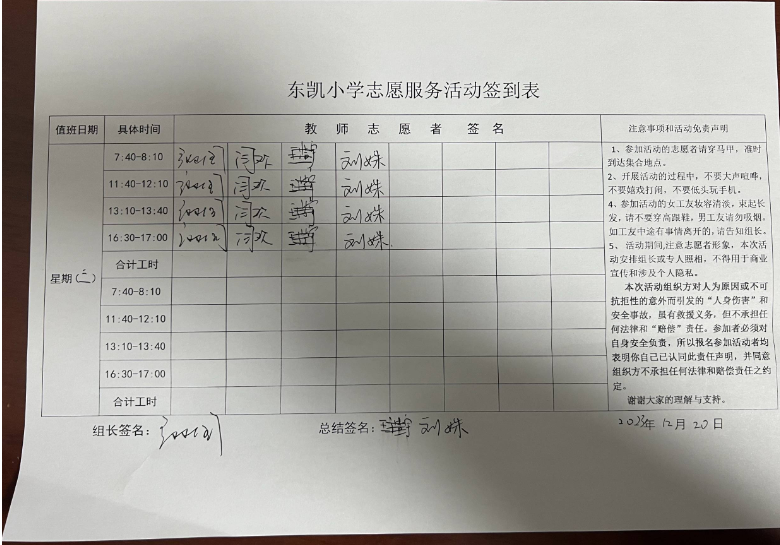 东凯小学志愿服务活动签到表
值班日期 具体时间 教师志愿者签名 注意事项和活动免责声明
星期(三)
7:40-8:10 闫欢 刘姝
11:40-12:10 闫欢 刘姝
13:10-13:40 闫欢 刘姝
16:30-17:00 闫欢 刘姝
合计工时
7:40-8:10
11:40-12:10
13:10-13:40
16:30-17:00
合计工时
1、参加活动的志愿者请穿马甲，准时
到达集合地点。
2、开展活动的过程中，不要大声喧哗，
不要嬉戏打闹，不要低头玩手机。
4、参加活动的女工友妆容清淡，束起长
发，请不要穿高跟鞋，男工友请勿吸烟。
如工友中途有事情离开的，请告知组长。
5、活动期间，注意志愿者形象，本次活
动安排组长或专人照相，不得用于商业
宣传和涉及个人隐私。
本次活动组织方对人为原因或不可
抗拒性的意外而引发的“人身伤害”和
安全事故，虽有救援义务，但不承担任
何法律和“赔偿”责任。参加者必须对
自身安全负责，所以报名参加活动者均
表明你自己已认同此责任声明，并同意
组织方不承担任何法律和赔偿责任之约
定。
谢谢大家的理解与支持。
组长签名： 总结签名： 刘姝 2023年12月20日